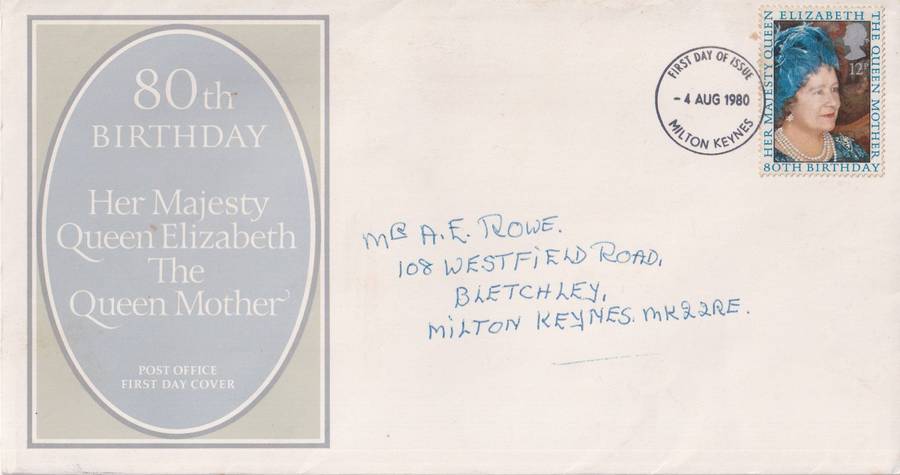 80th
BIRTHDAY
Her Majesty
Queen Elizabeth
The
Queen Mother
POST OFFICE
FIRST DAY COVER
FIRST DAY OF ISSUE
- 4 AUG 1980
MILTON KEYNES
HER MAJESTY QUEEN ELIZABETH THE QUEEN MOTHER
12P
80TH BIRTHDAY
MR A.E. ROWE.
108 WESTFIELD ROAD,
BLETCHLEY,
MILTON KEYNES. MK22RE.